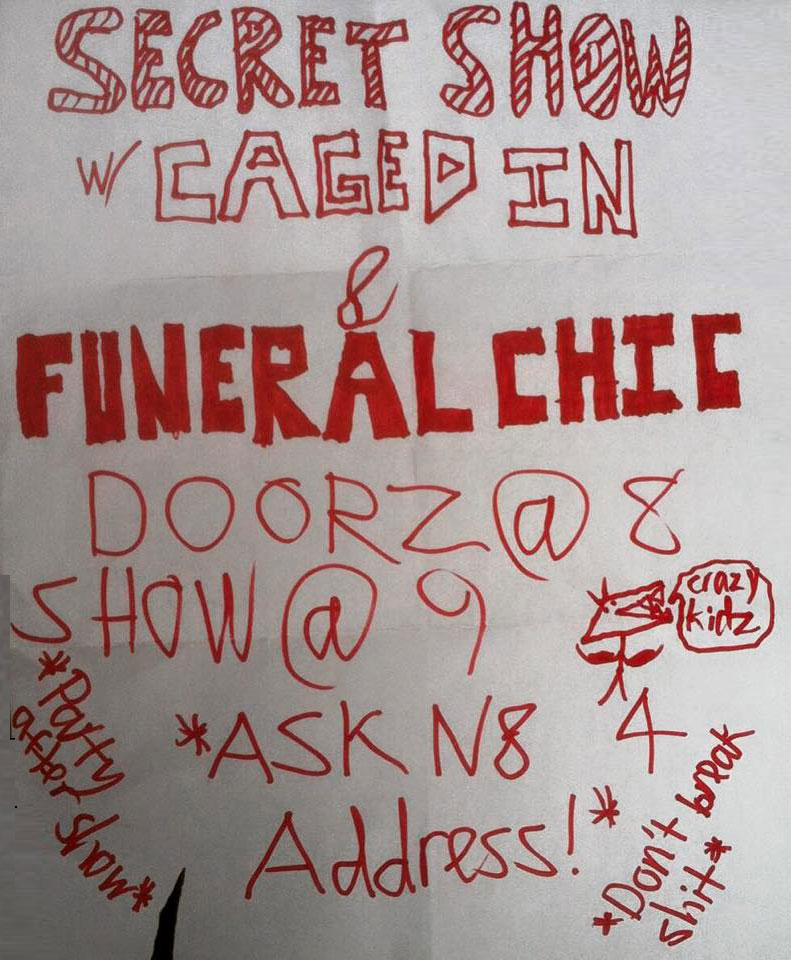 SECRET SHOW
w/ CAGED IN
&
FUNERAL CHIC
DOORZ @ 8
SHOW @ 9
crazy
kidz
*ASK N8 4
Address!*
*Party
after show*
*Don't break
shit*